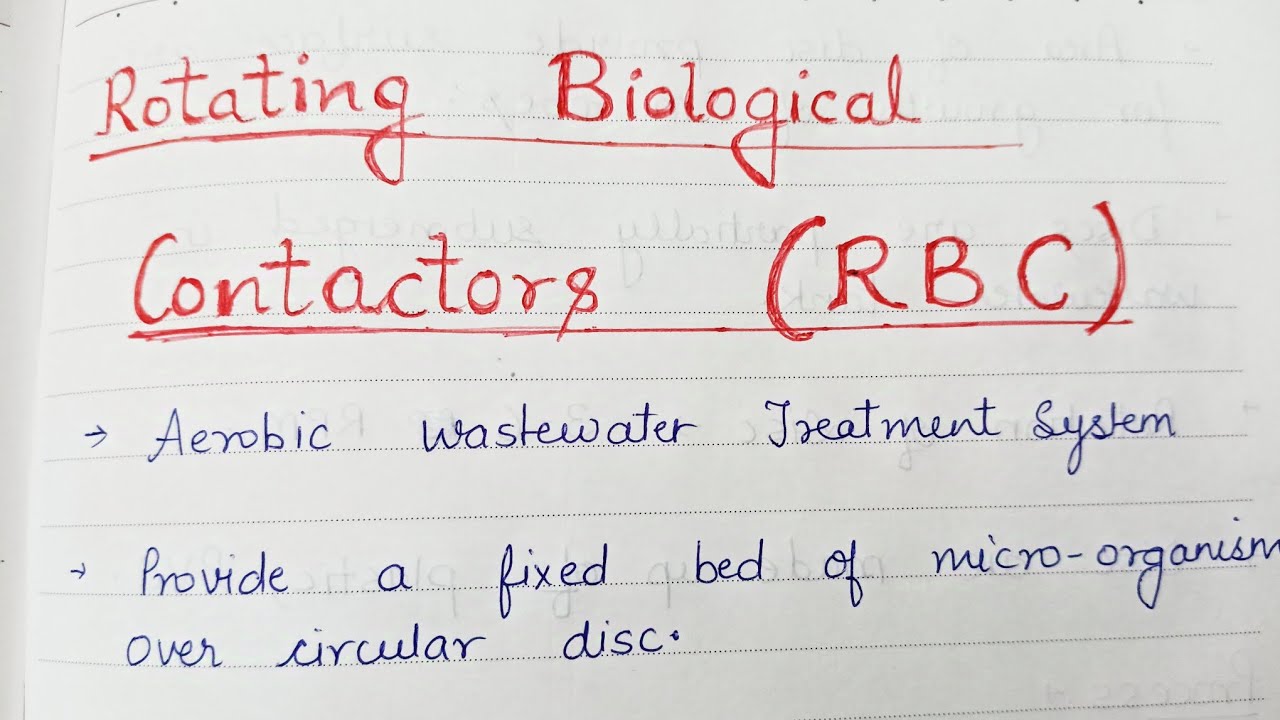 Rotating Biological
Contactors (RBC)
→ Aerobic wastewater Treatment System
→ Provide a fixed bed of micro-organism
over circular disc.